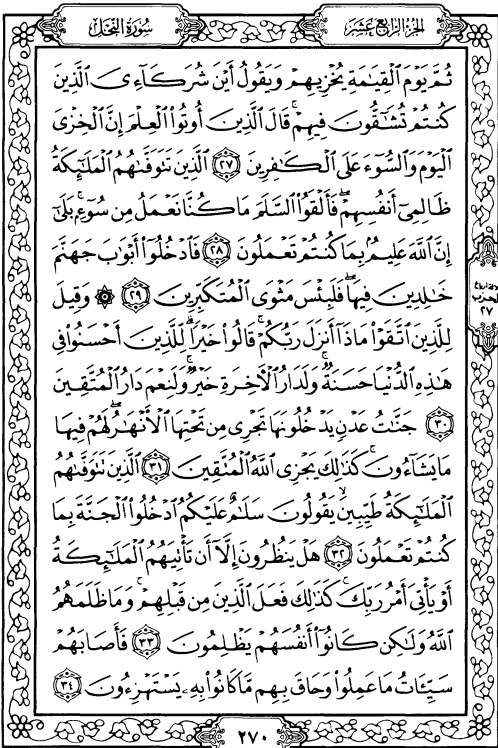 سُورَةُ النَّحْلِ
الجُزْءُ الرَّابِعَ عَشَرَ
ثُمَّ يَوْمَ الْقِيَامَةِ يُخْزِيهِمْ وَيَقُولُ أَيْنَ شُرَكَآءِىَ الَّذِينَ
كُنتُمْ تُشَاقُّونَ فِيهِمْ ۚ قَالَ الَّذِينَ أُوتُوا الْعِلْمَ إِنَّ الْخِزْىَ
الْيَوْمَ وَالسُّوٓءَ عَلَى الْكَافِرِينَ ٢٧ الَّذِينَ تَتَوَفَّاهُمُ الْمَلَائِكَةُ
ظَالِمِىٓ أَنفُسِهِمْ ۖ فَأَلْقَوُا السَّلَمَ مَا كُنَّا نَعْمَلُ مِن سُوٓءٍ ۚ بَلَىٰٓ
إِنَّ اللَّهَ عَلِيمٌۢ بِمَا كُنتُمْ تَعْمَلُونَ ٢٨ فَادْخُلُوٓا أَبْوَابَ جَهَنَّمَ
خَالِدِينَ فِيهَا ۖ فَلَبِئْسَ مَثْوَى الْمُتَكَبِّرِينَ ٢٩ ۞ وَقِيلَ
لِلَّذِينَ اتَّقَوْا مَاذَآ أَنزَلَ رَبُّكُمْ ۚ قَالُوا خَيْرًا ۗ لِّلَّذِينَ أَحْسَنُوا فِى
هَٰذِهِ الدُّنْيَا حَسَنَةٌ ۚ وَلَدَارُ الْآخِرَةِ خَيْرٌ ۚ وَلَنِعْمَ دَارُ الْمُتَّقِينَ
٣٠ جَنَّاتُ عَدْنٍ يَدْخُلُونَهَا تَجْرِى مِن تَحْتِهَا الْأَنْهَارُ ۖ لَهُمْ فِيهَا
مَا يَشَآءُونَ ۚ كَذَٰلِكَ يَجْزِى اللَّهُ الْمُتَّقِينَ ٣١ الَّذِينَ تَتَوَفَّاهُمُ
الْمَلَائِكَةُ طَيِّبِينَ ۙ يَقُولُونَ سَلَامٌ عَلَيْكُمُ ادْخُلُوا الْجَنَّةَ بِمَا
كُنتُمْ تَعْمَلُونَ ٣٢ هَلْ يَنظُرُونَ إِلَّآ أَن تَأْتِيَهُمُ الْمَلَائِكَةُ
أَوْ يَأْتِىَ أَمْرُ رَبِّكَ ۚ كَذَٰلِكَ فَعَلَ الَّذِينَ مِن قَبْلِهِمْ ۚ وَمَا ظَلَمَهُمُ
اللَّهُ وَلَٰكِن كَانُوٓا أَنفُسَهُمْ يَظْلِمُونَ ٣٣ فَأَصَابَهُمْ
سَيِّئَاتُ مَا عَمِلُوا وَحَاقَ بِهِم مَّا كَانُوا بِهِۦ يَسْتَهْزِءُونَ ٣٤
الحزب
٢٧
٢٧٠